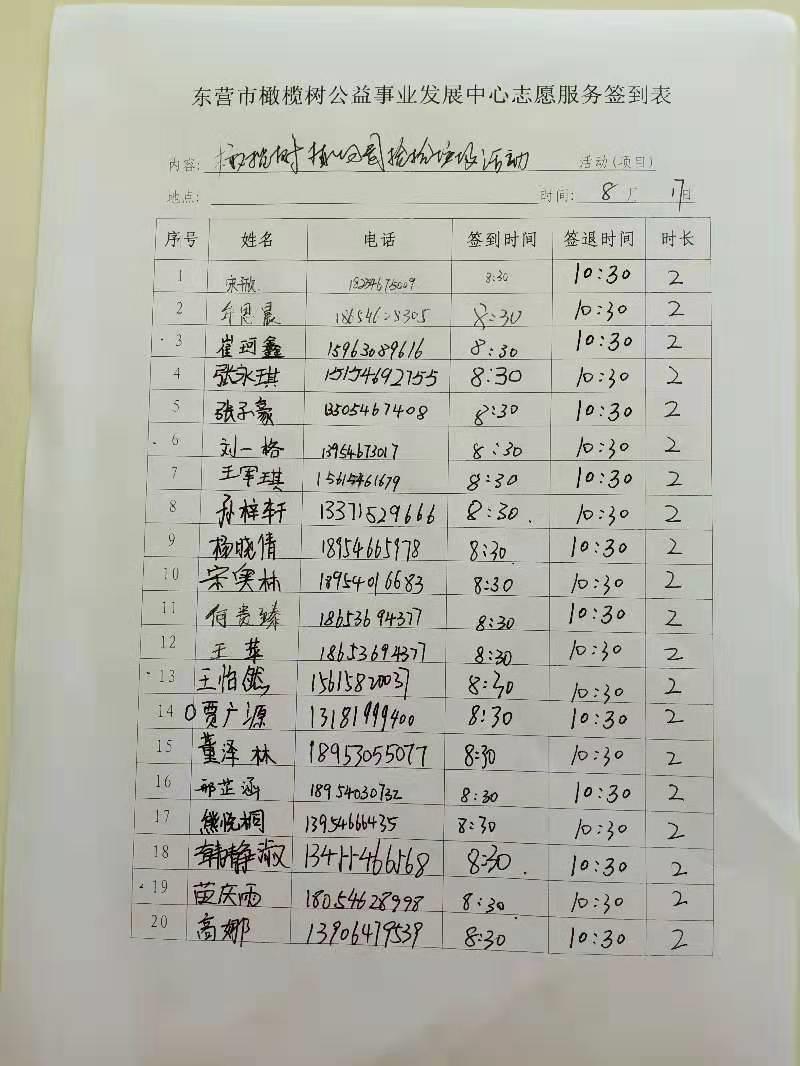 东营市橄榄树公益事业发展中心志愿服务签到表
内容: 橄榄树 捡拾垃圾活动 活动(项目)
地点: 时间: 8月 17日
序号 姓名 电话 签到时间 签退时间 时长
1 宋敏 8:30 10:30 2
2 8:30 10:30 2
3 崔珂鑫 15963089616 8:30 10:30 2
4 张永琪 15154692755 8:30 10:30 2
5 张子豪 13505467408 8:30 10:30 2
6 刘一格 13954673017 8:30 10:30 2
7 王军琪 15615461679 8:30 10:30 2
8 孙梓轩 13371529666 8:30 10:30 2
9 杨晓倩 18954665978 8:30 10:30 2
10 宋奕林 18954016683 8:30 10:30 2
11 何贵臻 18653694377 8:30 10:30 2
12 王苹 18653694377 8:30 10:30 2
13 王怡然 15615820037 8:30 10:30 2
14 贾广源 13181999400 8:30 10:30 2
15 董泽林 18953055077 8:30 10:30 2
16 邢芷涵 18954030732 8:30 10:30 2
17 熊悦桐 13954666435 8:30 10:30 2
18 韩静淑 8:30 10:30 2
19 苗庆雨 18054628998 8:30 10:30 2
20 高娜 13906479539 8:30 10:30 2